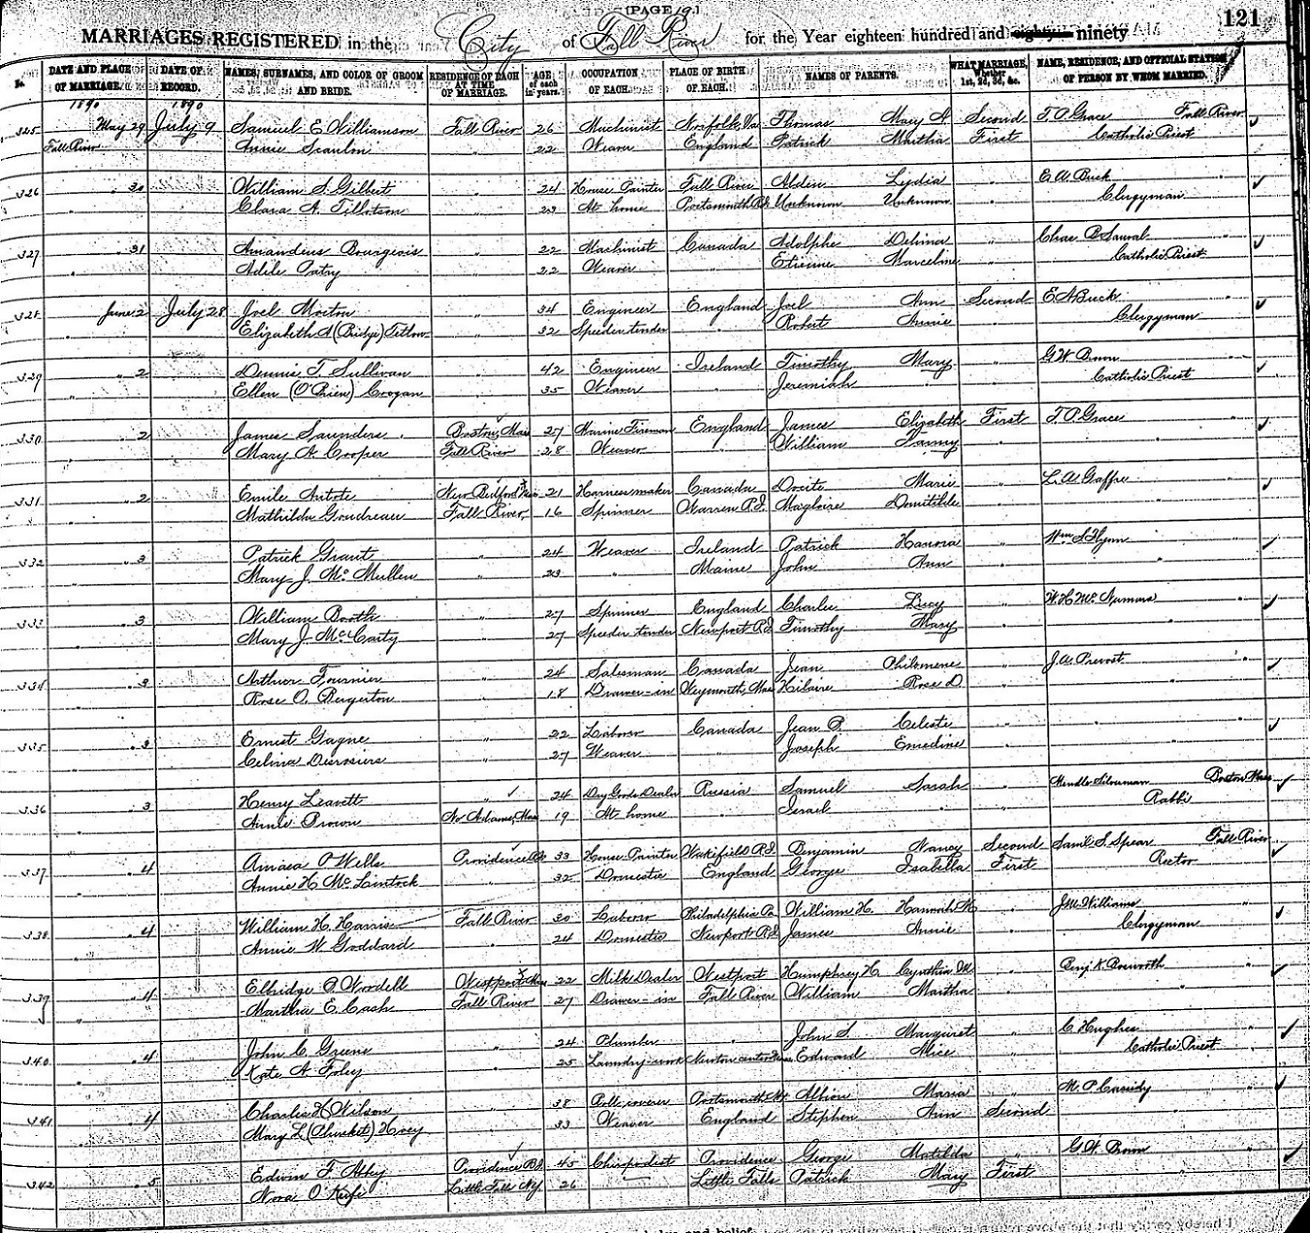 [PAGE 19.]
121
MARRIAGES REGISTERED in the City of Fall River for the Year eighteen hundred and eighty- ninety
No. DATE AND PLACE OF MARRIAGE. DATE OF RECORD. NAMES, SURNAMES, AND COLOR OF GROOM AND BRIDE. RESIDENCE OF EACH AT TIME OF MARRIAGE. AGE of each in years. OCCUPATION OF EACH. PLACE OF BIRTH OF EACH. NAMES OF PARENTS. WHAT MARRIAGE, Whether 1st, 2d, 3d, &c. NAME, RESIDENCE, AND OFFICIAL STATION OF PERSON BY WHOM MARRIED.
1890 1890
325 May 29 July 9 Samuel E Williamson Fall River 26 Machinist Norfolk, Va Thomas Mary A Second T. P. Grace Fall River
Fall River Annie Scanlon " 22 Weaver England Patrick Martha First Catholic Priest
326 " 30 William S. Gilbert " 24 House Painter Fall River Alden Lydia " E. A. Buck "
" Clara A. Tillotson " 23 At home Portsmouth R.I. Unknown Unknown " Clergyman
327 " 31 Amandeus Bourgeois " 22 Machinist Canada Adolphe Delima " Chas. P. "
" Adile Patry " 22 Weaver " Etienne Marceline " Catholic Priest
328 June 2 July 28 Joel Morton " 34 Engineer England Joel Ann Second E. A. Buck "
" Elizabeth A (Bridge) Tetlow " 32 Speeder tender " Robert Annie " Clergyman
329 " 2 Dennis T. Sullivan " 42 Engineer Ireland Timothy Mary " "
" Ellen (O'Brien) Crogan " 35 Weaver " Jeremiah " Catholic Priest
330 " 2 James Saunders Boston, Mass 27 Marine Fireman England James Elizabeth First T. P. Grace "
" Mary A. Cooper Fall River 28 Weaver " William Fanny " "
331 " 2 Emile New Bedford, Mass 21 Harness maker Canada Marie " "
" Mathilda Goudreau Fall River 16 Spinner Warren R.I. Magloire Domitilde " "
332 " 3 Patrick Grant " 24 Weaver Ireland Patrick Hanora " Wm. S. Flynn "
" Mary J. McMullen " 23 " Maine John Ann " "
333 " 3 William Booth " 27 Spinner England Charles Lucy " W. H. McNamara "
" Mary J. McCarty " 27 Speeder tender Newport R.I. Timothy Mary " "
334 " 3 Arthur Fournier " 24 Salesman Canada Jean Philomene " J. A. Prevost "
" Rose O. Bergerton " 18 Drawer-in Weymouth, Mass Hilaire Rose D. " "
335 " 3 Ernest Gagne " 22 Laborer Canada Jean B. Celeste " " "
" Celina Desrosiers " 27 Weaver " Joseph Emedine " "
336 " 3 Henry Leavett " 24 Dry Goods Dealer Russia Samuel Sarah " Mendle Silverman Boston Mass
" Annie Brown No Adams, Mass 19 At home " Israel " " Rabbi
337 " 4 Amasa O Wells Providence R.I. 33 House Painter Wakefield R.I. Benjamin Nancy Second Saml. S. Spear Fall River
" Annie H. McLintock " 32 Domestic England George Isabella First Rector
338 " 4 William H. Harris Fall River 30 Laborer Philadelphia Pa William H. Hannah M " J.M. Williams "
" Annie W. Goddard " 24 Domestic Newport R.I. James Annie " Clergyman
339 " 4 Elbridge P. Wordell Westport, Mass 22 Milk Dealer Westport Humphrey H. Cynthia M " Benj. K. Bosworth "
" Martha E. Cash Fall River 27 Drawer-in Fall River William Martha " "
340 " 4 John C. Greene " 24 Plumber " John S. Margaret " C. Hughes "
" Kate A. Foley " 25 Laundry work Newton Center Mass Edward Alice " Catholic Priest
341 " 4 Charles H. Wilson " 38 Roll coverer Portsmouth Albion Maria " M. P. Cassidy "
" Mary L. (Plunkett) Hoey " 33 Weaver England Stephen Ann Second "
342 " 5 Edwin F. Providence R.I. 45 Chiropodist Providence George Matilda " "
" Nora O'Keefe Little Falls N.Y. 26 Little Falls Patrick Mary First "